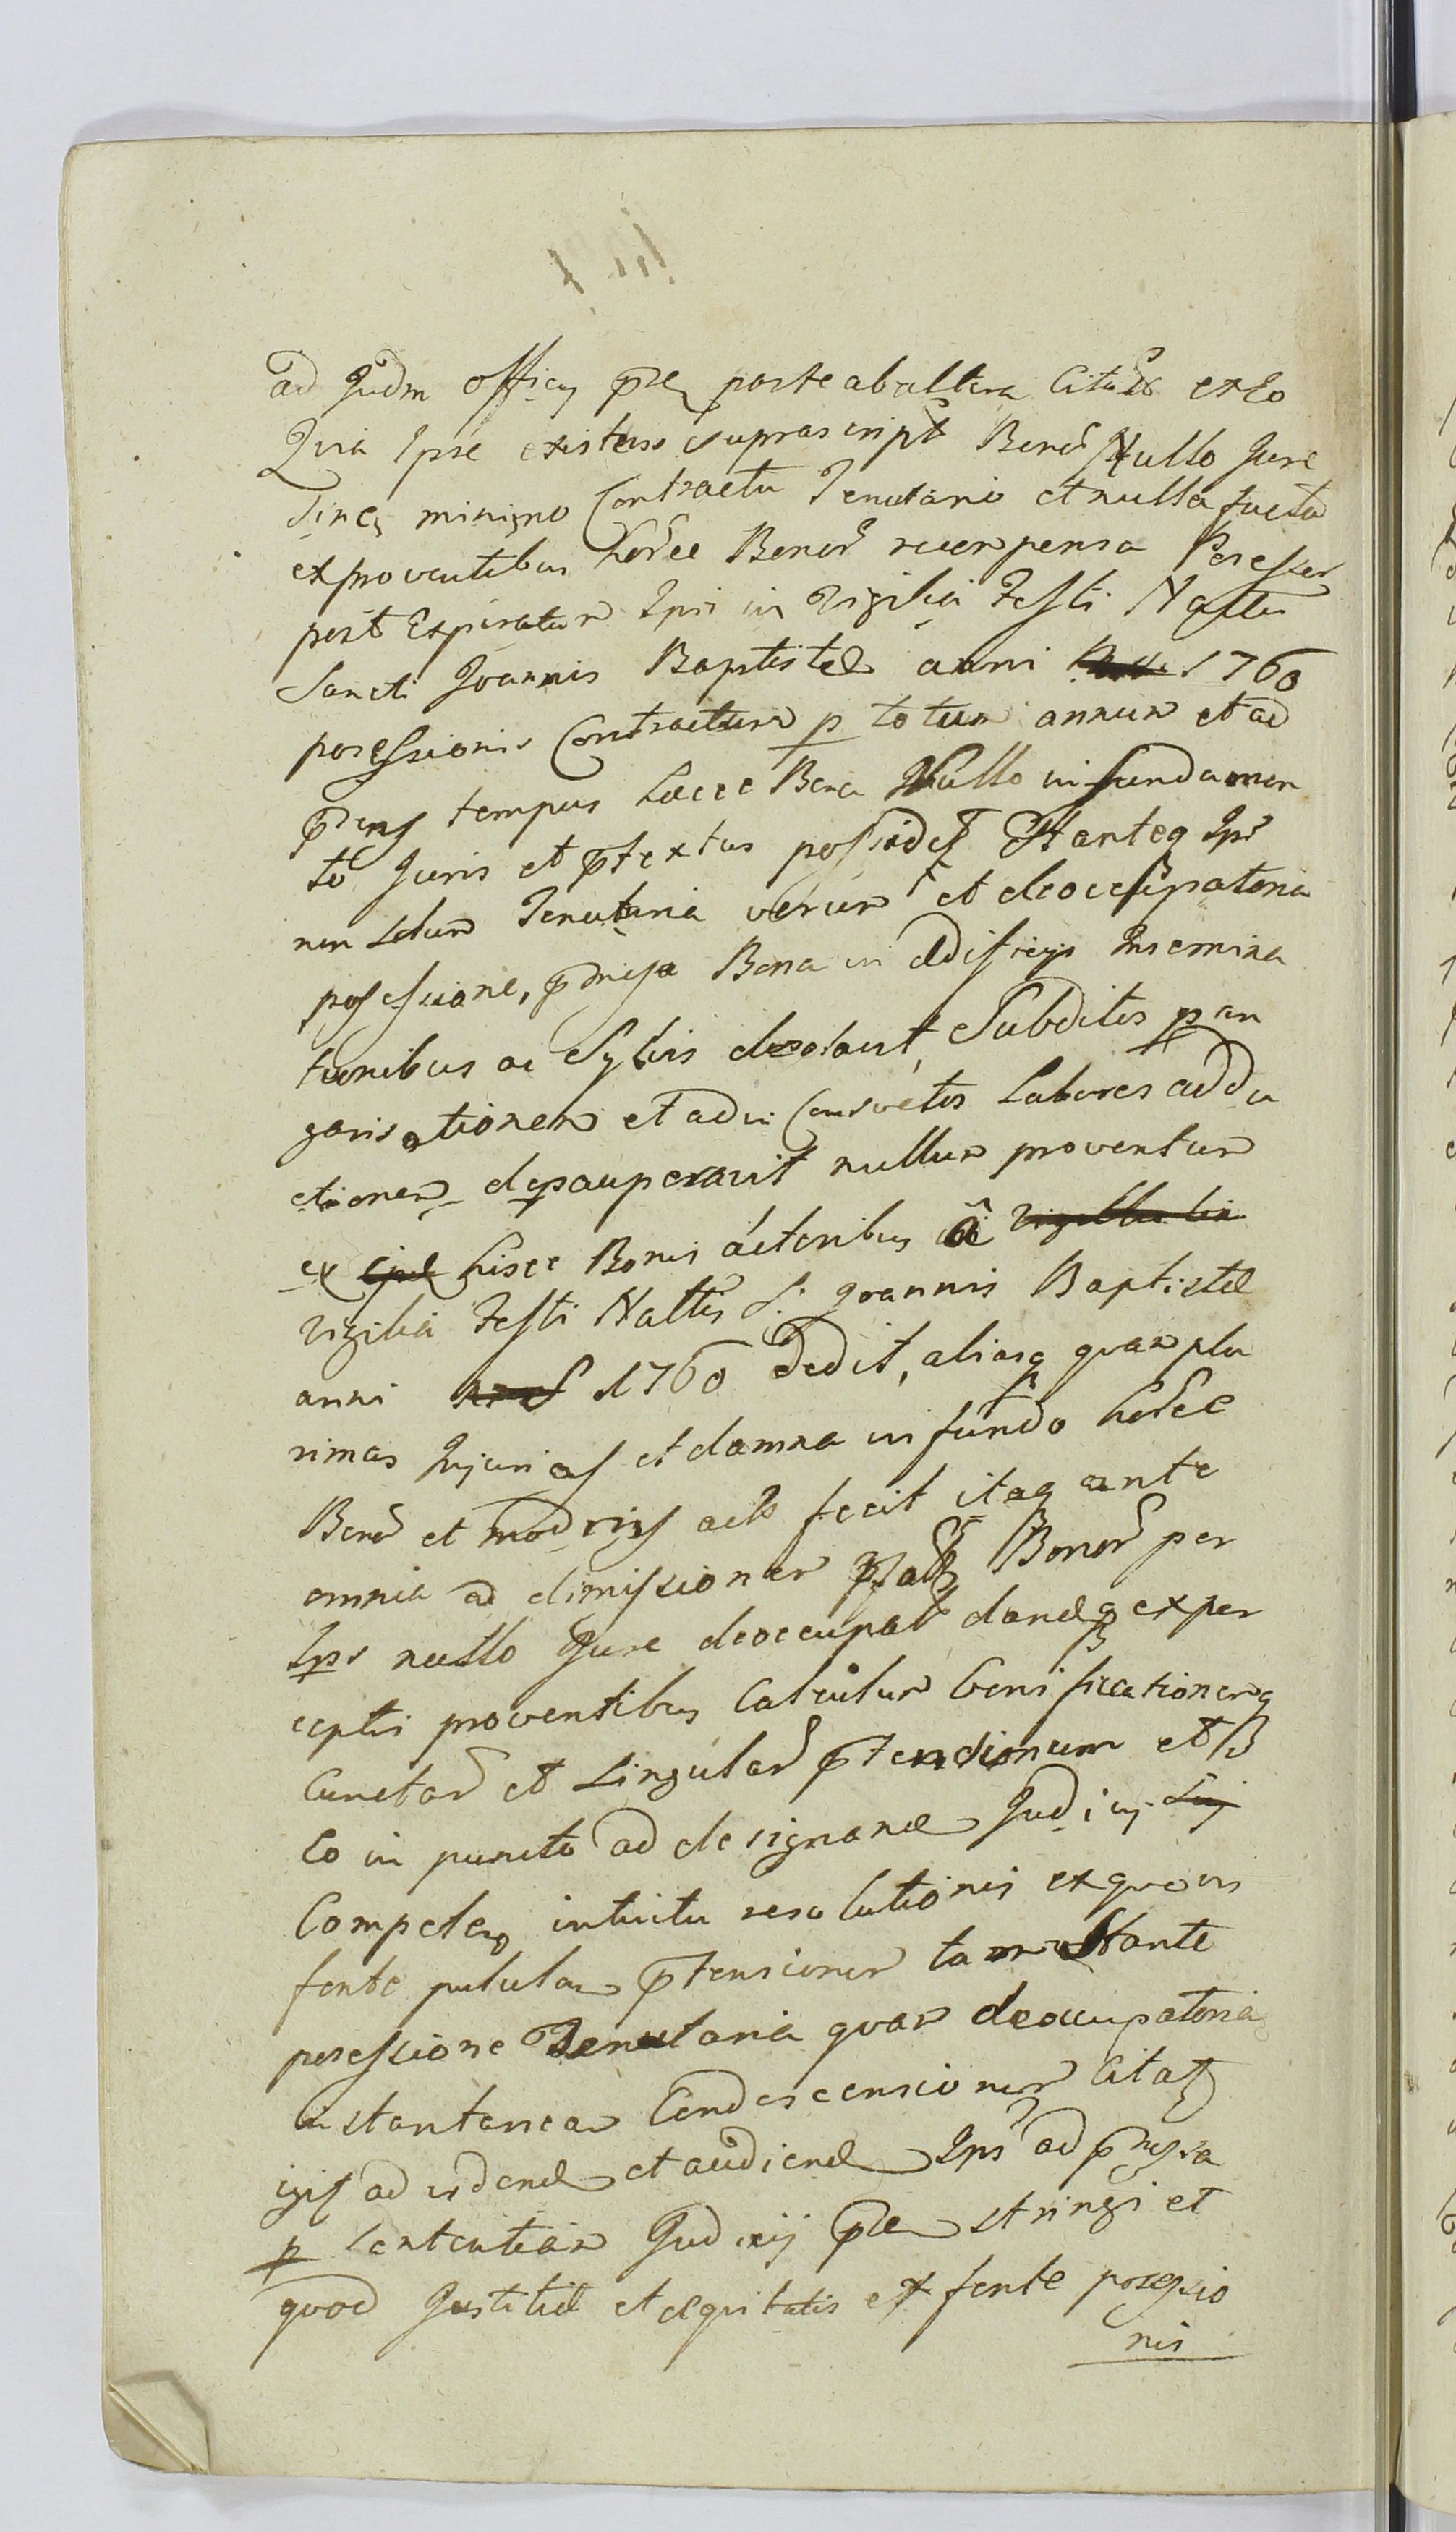 ad Judm officij pñs parte ab altera Citat ex Eo
Quia Ipse existens suprascript Bonor Nullo Jure
Sineq minimo Contractu Tenutario et nulla facta
ex proventibus horce Bonor recompensa Possessor
post Expiratum Ipsi in Vigilia Festi Nattis
Sancti Joannis Baptistæ anni 1760
possessionis Contractum p totum annum et ad
pñdens tempus haece Bona Nullo in fundamen
to Juris et ptextus possidet Stanteq Ipsi
non solum Tenutaria verum et deoccupatoria
possessione, pmissa Bona in ædificijs Insemina
tionibus ac Sylvis desolavit, Subditos p an
garisationem et ad in Consvetos Labores addu
ctionem depauperavit nullum proventum
ex hisce Bonis actoribus â
vigilia Festi Nattis S. Joannis Baptistæ
anni 1760 dedit, aliasq quam plu
rimas Injurias et damna in fundo horce
Bonor et modrnis actis fecit itaq ante
omnia ad dimissionem pfat Bonor per
Ips nullo Jure deoccupat dandq ex per
ceptis proventibus Calculum bonificationemq
Cunctar et Singular ptensionum et
Eo in puncto ad designand Judicij
Competens intuitu resolutionis ex quovis
fonte pululan ptensionem tam Stante
possessione Tenutaria quam deoccupatoria
instantanea Condescensionem Citat
igis ad vdend et audiend Ips ad pmissa
p sententiam Judicij pñs stringi et
quod Justitiæ et æquitatis ex fonte possessio
nis